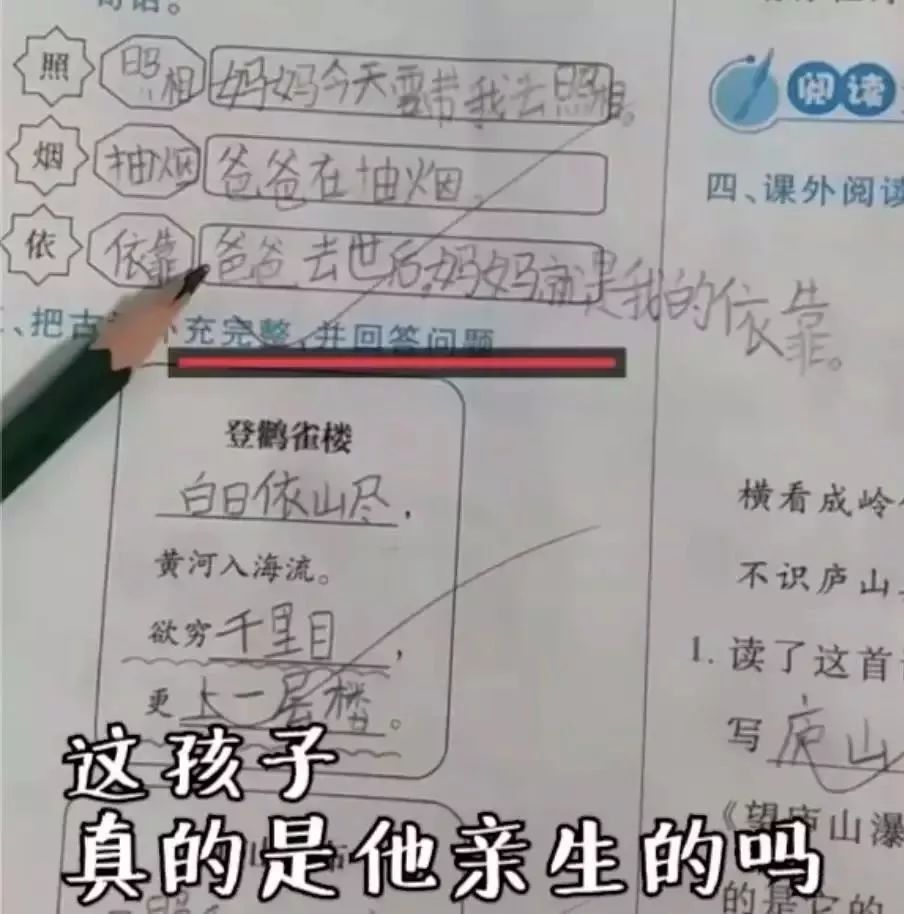 照 照相 妈妈今天要带我去照相。
烟 抽烟 爸爸在抽烟。
依 依靠 爸爸去世后,妈妈就是我的依靠。
把古 充完整,并回答问题
登鹳雀楼
白日依山尽,
黄河入海流。
欲穷千里目,
更上一层楼。
阅读
四、课外阅读
横看成岭
不识庐山
1. 读了这首
写庐山
《望庐山瀑
的是它的
这孩子
真的是他亲生的吗